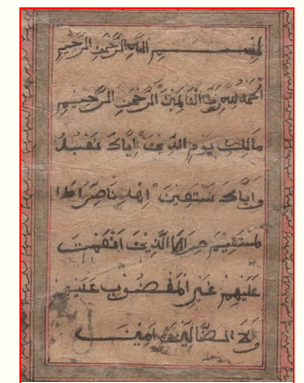 بسم الله الرحمن الرحيم
الحمد لله رب العالمين الرحمن الرحيم
مالك يوم الدين اياك نعبد
واياك نستعين اهدنا صراطا
لمستقيم صراط الذين انعمت
عليهم غير المغضوب عليهم
ولا الضالين امين